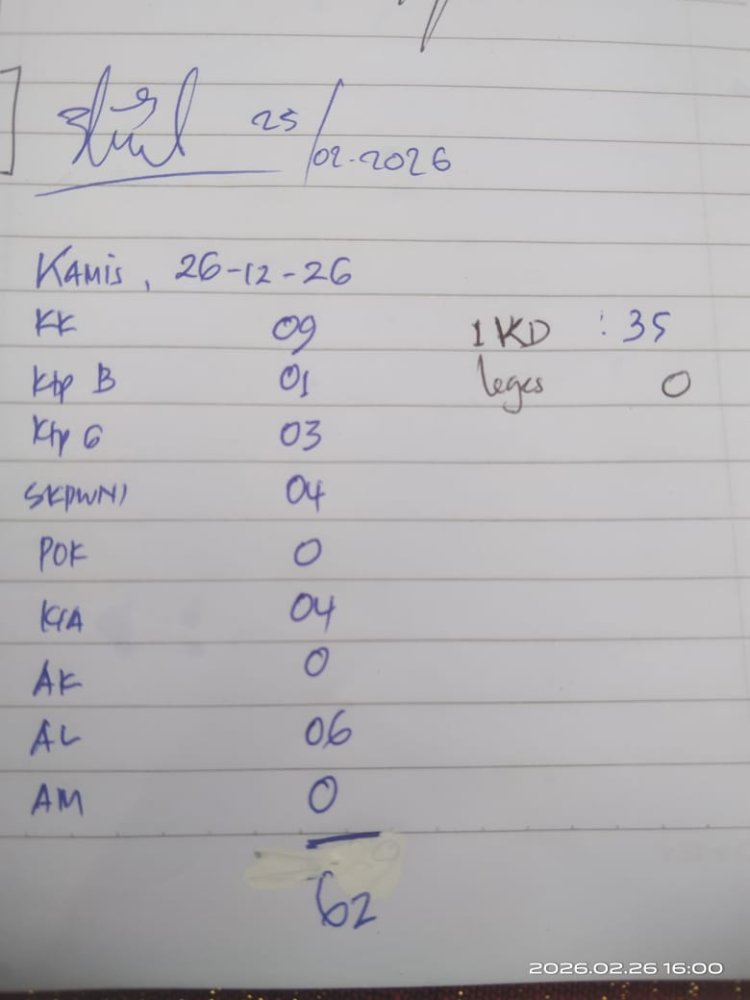 25/02-2026
Kamis, 26-12-26
KK 09 1 KD : 35
Ktp B 01 leges 0
Ktp G 03
SKPWNI 04
POK 0
KIA 04
AK 0
AL 06
AM 0
62
2026.02.26 16:00